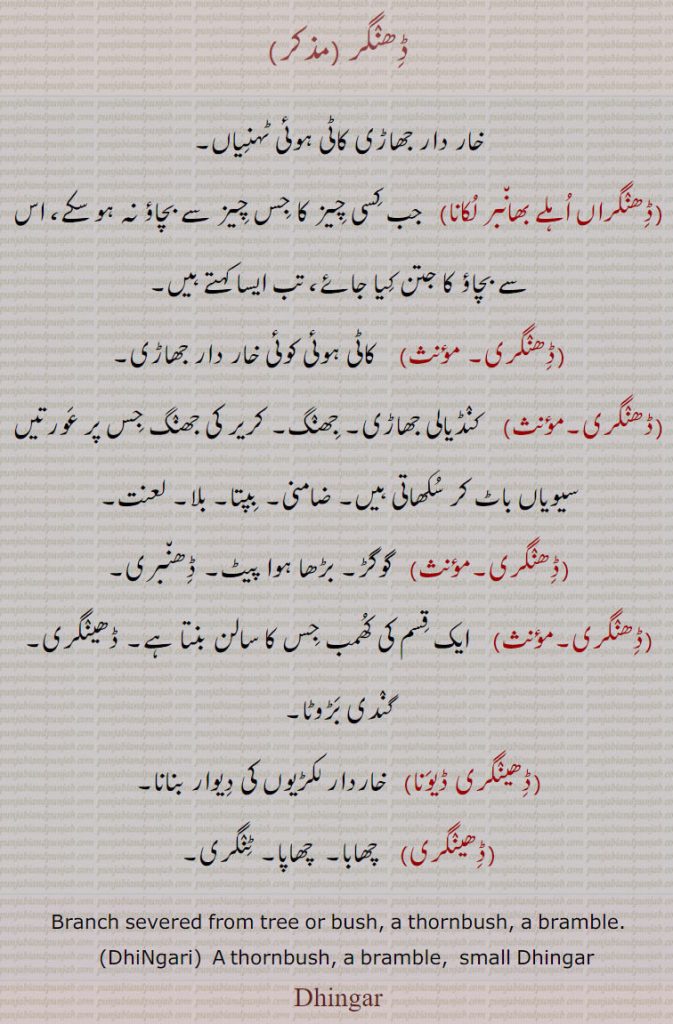 ڈِھنْگر (مذکر)
خار دار جھاڑی کاٹی ہوئی ٹہنِیاں۔
(ڈِھنْگراں اُہلے بھانْبر لُکانا) جب کِسی چِیز کا جِس چِیز سے بچاؤ نہ ہو سکے، اس
سے بچاؤ کا جتن کِیا جائے، تب ایسا کہتے ہیں۔
(ڈِھنْگری۔ مؤنث) کاٹی ہوئی کوئی خار دار جھاڑی۔
(ڈھنْگری۔مؤنث) کنْڈیالی جھاڑی۔ جِھنْگ۔ کریر کی جھنْگ جِس پر عَورتیں
سیویاں باٹ کر سُکھاتی ہیں۔ ضامنی۔ بِپتا۔ بلا۔ لعنت۔
(ڈِھنْگری۔مؤنث) گوگڑ۔ بڑھا ہوا پیٹ۔ ڈِھنْبری۔
(ڈِھنْگری۔مؤنث) ایک قِسم کی کُھمب جِس کا سالن بنتا ہے۔ ڈھینْگری۔
گنْدی بَڑوٹا۔
(ڈِھینْگری ڈیوَنا) خاردار لکڑیوں کی دِیوار بنانا۔
(ڈِھینْگری) چھابا۔ چھاپا۔ ٹِنْگری۔
Branch severed from tree or bush, a thornbush, a bramble.
(DhiNgari) A thornbush, a bramble, small Dhingar
Dhingar